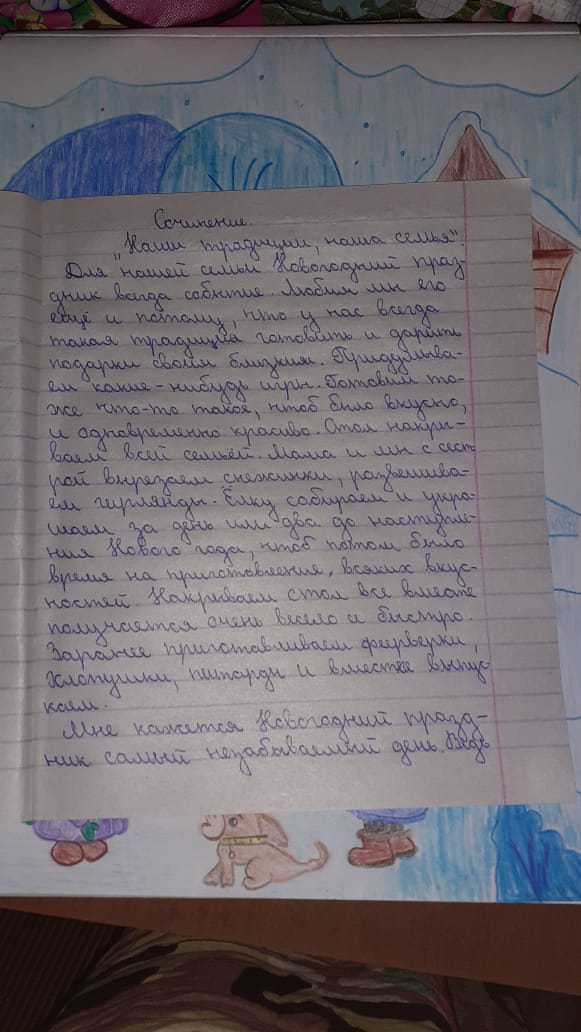 Сочинение.
"Наши традиции, наша семья".
Для нашей семьи Новогодний праз-
дник всегда событие. Любим мы его
ещё и потому, что у нас всегда
такая традиция готовить и дарить
подарки своим близким. Придумыва-
ем какие-нибудь игры. Готовим то-
же что-то такое, чтоб было вкусно,
и одновременно красиво. Стол накры-
ваем всей семьёй. Мама и мы с сест-
рой вырезаем снежинки, развешива-
ем гирлянды. Ёлку собираем и укра-
шаем за день или два до наступле-
ния Нового года, чтоб потом было
время на приготовление, всяких вкус-
ностей. Накрываем стол все вместе
получается очень весело и быстро.
Заранее приготавливаем феерверки,
хлопушки, питарды и вместее выпус-
каем.
Мне кажется Новогодний празд-
ник самый незабываемый день. Ведь